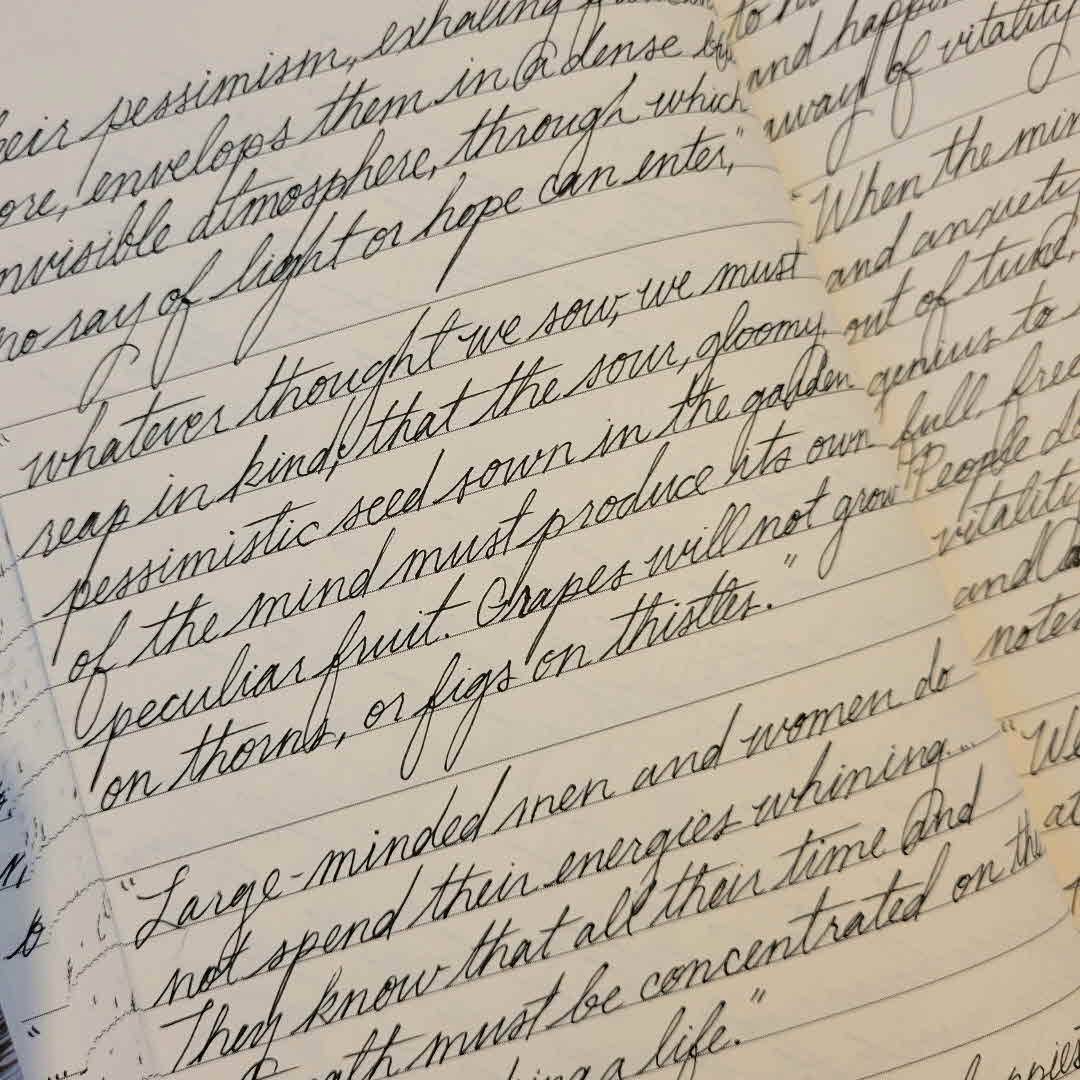 pessimism, exhaling
envelops them in a dense
invisible atmosphere, through which
no ray of light or hope can enter,"
whatever thought we sow, we must
reap in kind, that the sour, gloomy,
pessimistic seed sown in the garden
of the mind must produce its own
peculiar fruit. Grapes will not grow
on thorns, or figs on thistles."
"Large-minded men and women do
not spend their energies whining...
They know that all their time and
must be concentrated on the
a life."
and
away of vitality
When the
and anxiety
out of tune,
genius to
full
"People
vitality
and
notes
"We